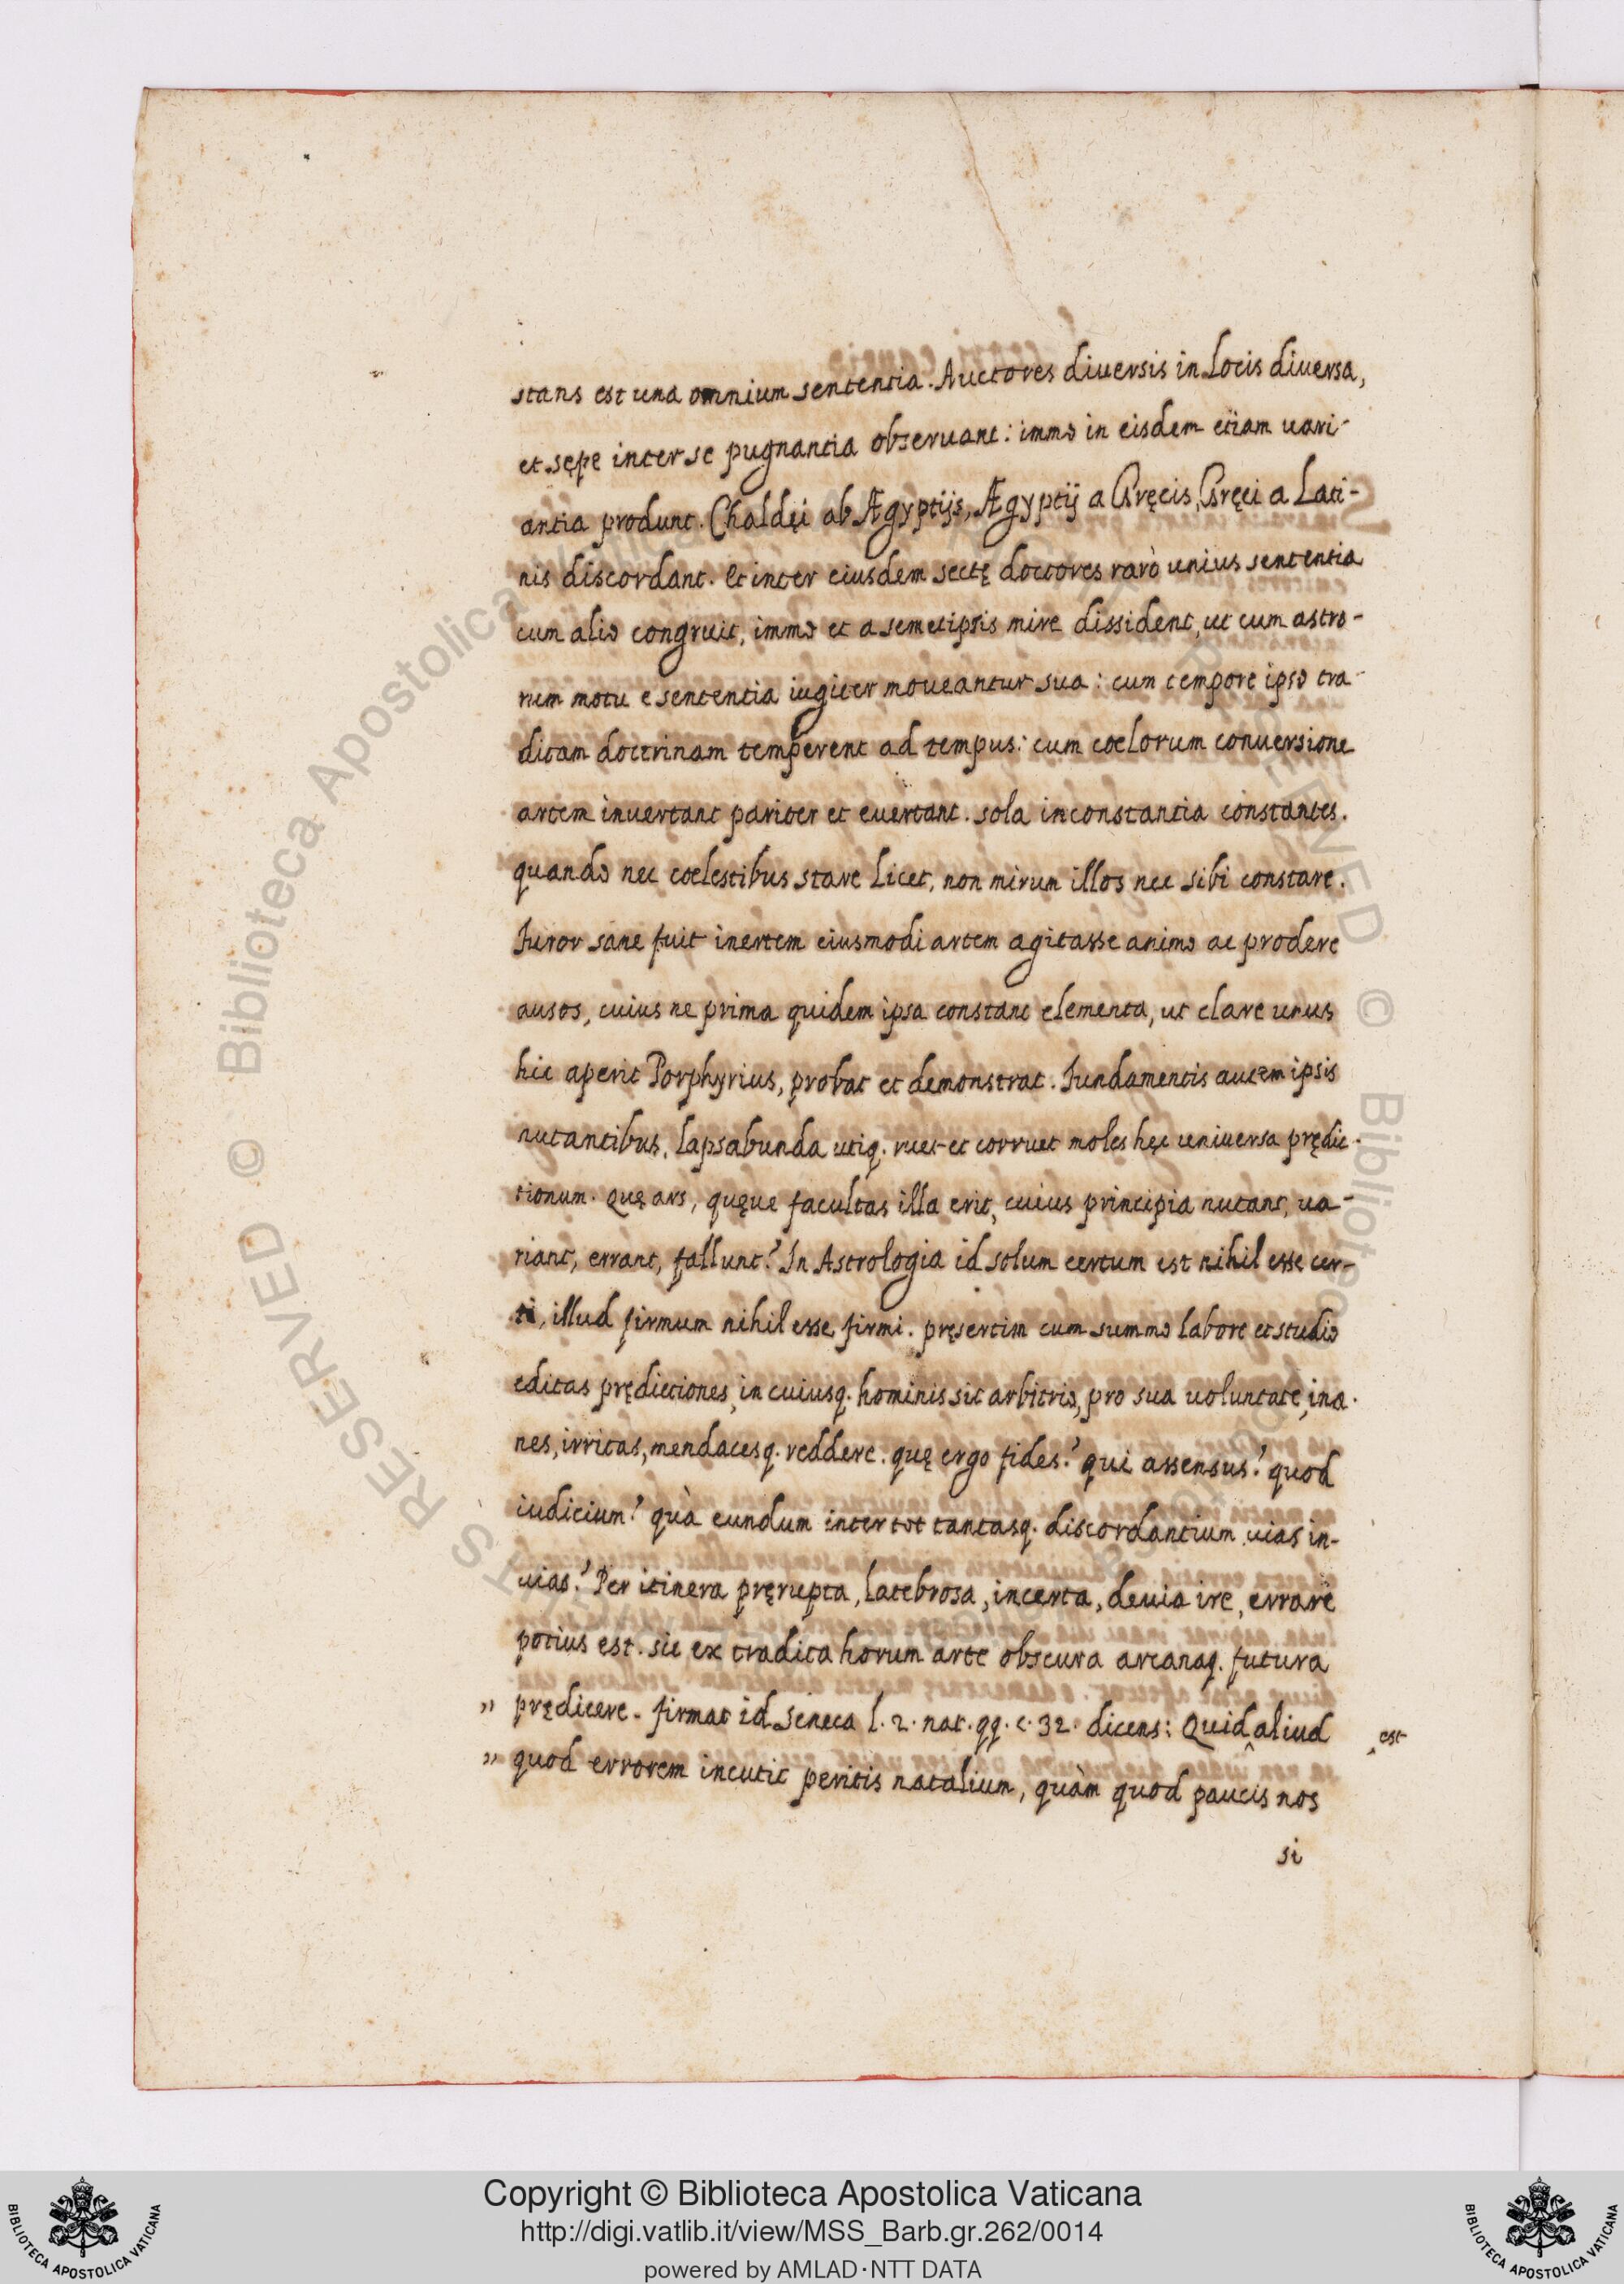 stans est una omnium sententia. Auctores diuersis in Locis diuersa,
et sępe inter se pugnantia obseruant: immo in eisdem etiam uari-
antia produnt. Chaldęi ab Ægyptijs, Ægyptij a Gręcis, Gręci a Lati-
nis discordant. et inter eiusdem sectę doctores rarò unius sententia
cum alio congruit, immo et a semetipsis mire dissident, ut cum astro-
rum motu e sententia iugiter moueantur sua: cum tempore ipso tra-
ditam doctrinam temperent ad tempus: cum coelorum conuersione
artem inuertant pariter et euertant. sola inconstantia constantes.
quando nec coelestibus stare Licet, non mirum illos nec sibi constare.
Furor sane fuit inertem eiusmodi artem agitasse animo ac prodere
ausos, cuius ne prima quidem ipsa constant elementa, ut clare unus
hic aperit Porphyrius, probat et demonstrat. Fundamentis autem ipsis
nutantibus, Lapsabunda utiq. ruet et corruet moles hęc uniuersa prędic-
tionum. Quę ars, quęue facultas illa erit, cuius principia nutant, ua-
riant, errant, fallunt? In Astrologia id solum certum est nihil esse cer-
ti, illud firmum nihil esse firmi. pręsertim cum summo Labore et studio
editas prędictiones, in cuiusq. hominis sit arbitrio, pro sua uoluntate, ina-
nes, irritas, mendacesq. reddere. quę ergo fides? qui assensus? quod
iudicium? quà eundum inter tot tantasq. discordantium uias in-
uias? Per itinera pręrupta, Latebrosa, incerta, deuia ire, errare
potius est. sic ex tradita horum arte obscura arcanaq. futura
" prędicere. firmat id Seneca l. 2. nat. qq. c. 32. dicens: Quid ‸ aliud ‸ est
" quod errorem incutit peritis natalium, quàm quod paucis nos
si
Copyright © Biblioteca Apostolica Vaticana
http://digi.vatlib.it/view/MSS_Barb.gr.262/0014
powered by AMLAD·NTT DATA
BIBLIOTECA APOSTOLICA VATICANA
BIBLIOTECA APOSTOLICA VATICANA